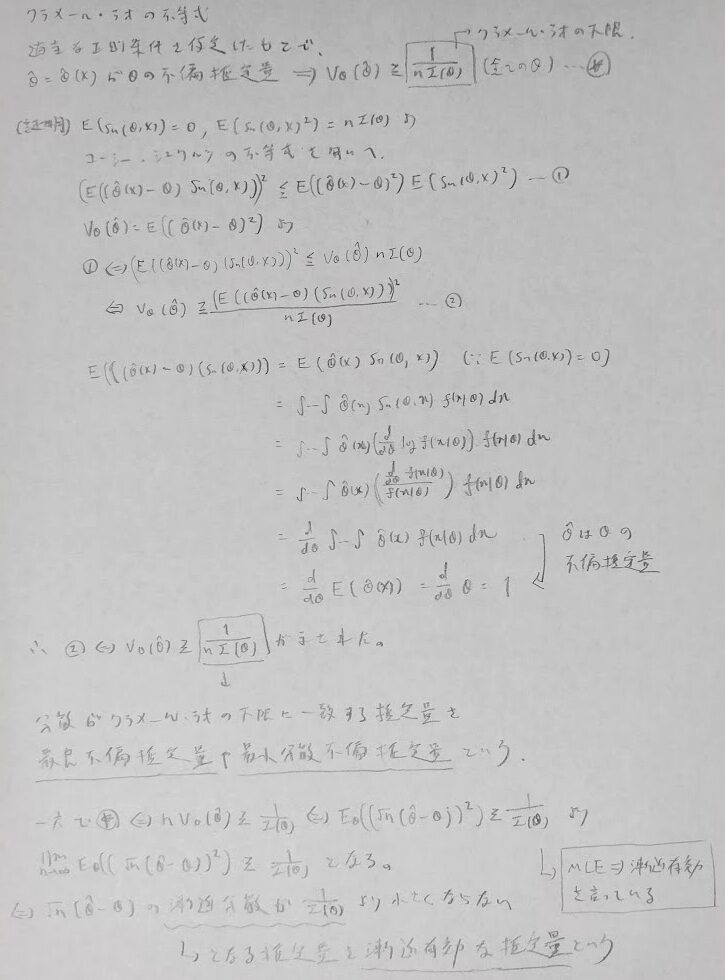 クラメール・ラオの不等式
適当な正則条件を仮定したもとで、
→ クラメール・ラオの下限.
θ̂ = θ̂(X) がθの不偏推定量 ⇒ V_θ(θ̂) ≧ 1/(nI(θ)) (全てのθ) …
(証明) E(Sn(θ,X)) = 0, E(Sn(θ,X)²) = nI(θ) より
コーシー・シュワルツの不等式を用いて、
(E((θ̂(X)-θ) Sn(θ,X)))² ≦ E((θ̂(X)-θ)²) E(Sn(θ,X)²) … ①
V_θ(θ̂) = E((θ̂(X)-θ)²) より
① ⇔ (E((θ̂(X)-θ)(Sn(θ,X))))² ≦ V_θ(θ̂) nI(θ)
⇔ V_θ(θ̂) ≧ (E((θ̂(X)-θ)(Sn(θ,X))))² / nI(θ) … ②
E((θ̂(X)-θ)(Sn(θ,X))) = E(θ̂(X) Sn(θ,X)) (∵ E(Sn(θ,X)) = 0)
= ∫…∫ θ̂(x) Sn(θ,x) f(x|θ) dx
= ∫…∫ θ̂(x) (d/dθ log f(x|θ)) f(x|θ) dx
= ∫…∫ θ̂(x) (d/dθ f(x|θ) / f(x|θ)) f(x|θ) dx
= d/dθ ∫…∫ θ̂(x) f(x|θ) dx
θ̂はθの
不偏推定量
= d/dθ E(θ̂(X)) = d/dθ θ = 1
∴ ② ⇔ V_θ(θ̂) ≧ 1/(nI(θ)) が示された。
↓
分散がクラメール・ラオの下限に一致する推定量を
最良不偏推定量や最小分散不偏推定量という.
一方で ⇔ nV_θ(θ̂) ≧ 1/I(θ) ⇔ E_θ((√n(θ̂-θ))²) ≧ 1/I(θ) より
lim n→∞ E_θ((√n(θ̂-θ))²) ≧ 1/I(θ) となる。
MLE ⇒ 漸近有効
を言っている
⇔ √n(θ̂-θ) の漸近分散が 1/I(θ) より小さくならない
↳ となる推定量を漸近有効な推定量という